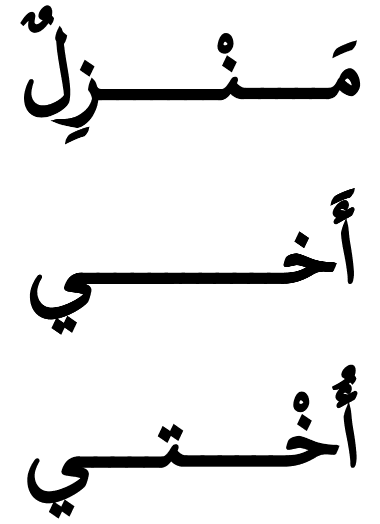 مَنْـــزِلٌ
أَخـــــي
أُخْـــتـــي